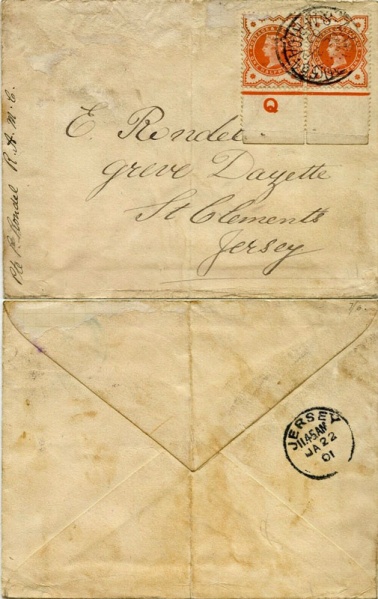 Q
E Rondel
Greve Dazette
St Clements
Jersey
Pte P Rondel R. A. M. C.
JERSEY
11.45AM
JA 22
01